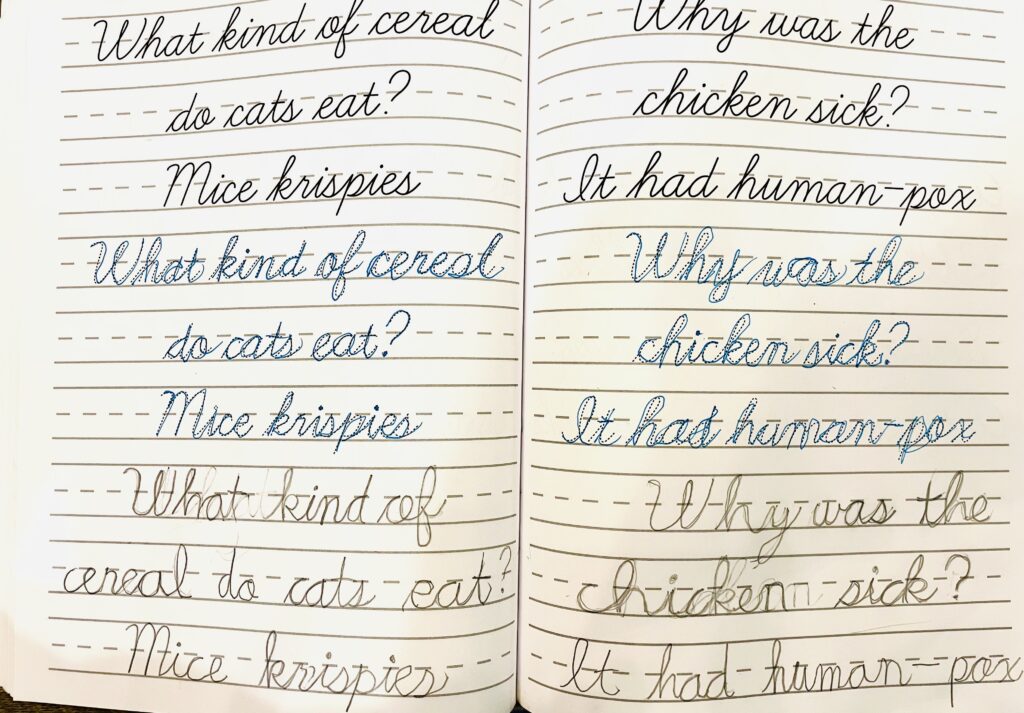 What kind of cereal
do cats eat?
Mice krispies
What kind of cereal
do cats eat?
Mice krispies
What kind of
cereal do cats eat?
Mice krispies
Why was the
chicken sick?
It had human-pox
Why was the
chicken sick?
It had human-pox
Why was the
chicken sick?
It had human-pox